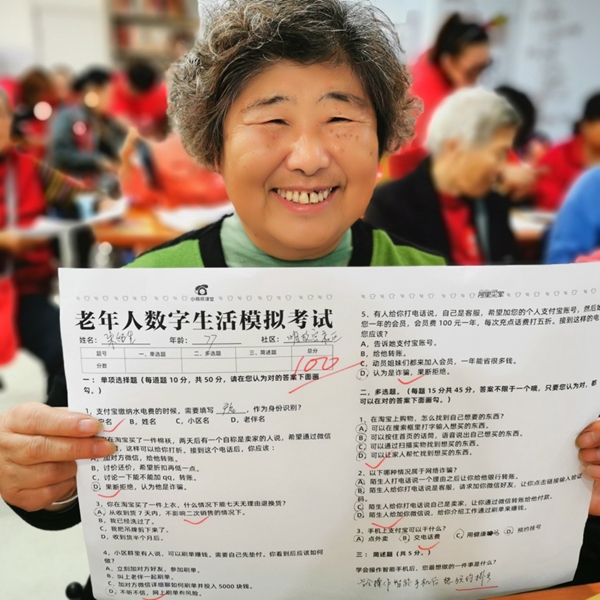 小鹿班课堂
老年人数字生活模拟考试
姓名:
年龄: 77
社区:
题号 一、单选题 二、多选题 三、简述题 总分
分数 100
一：单项选择题（每道题 10 分，共 50 分，请在您认为对的答案下面画
勾。）
1，支付宝缴纳水电费的时候，需要填写 ，作为身份识别？
户名 B，姓名 C，小区名 D，老伴名
在淘宝买了一件棉袄，两天后有一个自称是卖家的人说，希望通过微信
，这样可以给你打折，接到这个电话后，你应该：
加对方微信，给他转账。
B，讨价还价，希望折扣再低一点。
C，讨论一下能不能加 qq，转账。
D，果断拒绝，认为他是诈骗。
3，你在淘宝买了一件上衣，什么情况下能七天无理由退换货？
A，从收到货 7 天内，不影响二次销售的情况下。
B，我已经洗过了。
C，我把吊牌剪下来了。
D，收到货半个月后。
4，小区群里有人说，可以刷单赚钱，需要自己先垫付，你看到后应该如何
做？
A，立刻加对方好友，参加刷单。
B，叫上老伴一起刷单。
C，加对方微信详细聊如何刷单并投入 5000 块钱。
D，不听不信，网上刷单有风险。
5，有人给你打电话说，自己是客服，希望加您的个人支付宝账号，然后
您一年的会员，会员费 100 元一年，每次充点话费打五折。接到这样的电
您应该？
A，告诉她支付宝账号。
B，给他转账。
C，动员姐妹们都来加入会员，一年能省很多钱。
D，认为是诈骗，果断拒绝。
二，多选题。（每题 15 分共 45 分，答案不限于一个哦，只要您认为对，都
可以在对的答案下面画勾。）
1，在淘宝上购物，怎么找到自己想要的东西？
A，可以在搜索框里打字输入想买的东西。
B，可以按住首页的话筒，语音说出自己想买的东西。
C，可以通过扫描实物找到想买的东西。
D，可以让家人帮忙找到想买的东西。
2，以下哪种情况属于网络诈骗？
A，陌生人打电话说一个理由之后让你给他银行转账。
B，陌生人给你打电话说是客服，请求加你微信好友，让你点击链接输入验证
码。
C，陌生人给你打电话说自己是卖家，让你通过微信转账给他付款。
D，陌生人给加你微信说，给你介绍工作通过刷单来赚钱。
3，手机上支付宝可以干什么？
A，点外卖 B，交电话费 C，用健康码 D，预约挂号
三：简述题（共 5 分。）
学会操作智能手机后，您最想做的一件事是什么？